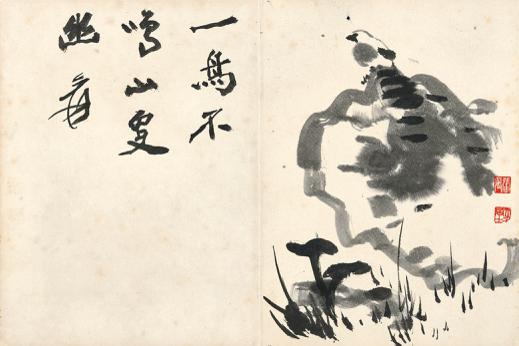 一鳥不
鳴山更
幽
爰